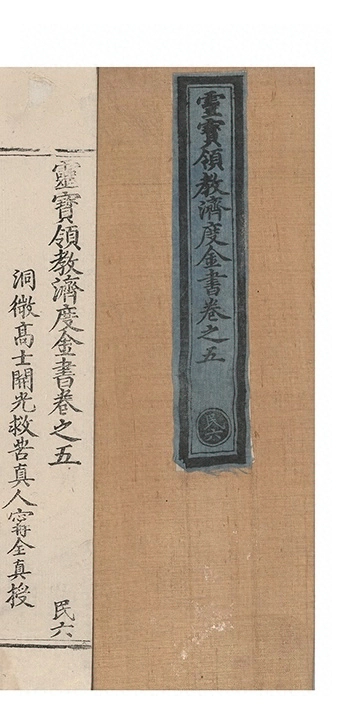 靈寶領教濟度金書卷之五
民六
靈寶領教濟度金書卷之五
民六
洞微高士開光救苦真人甯全真授